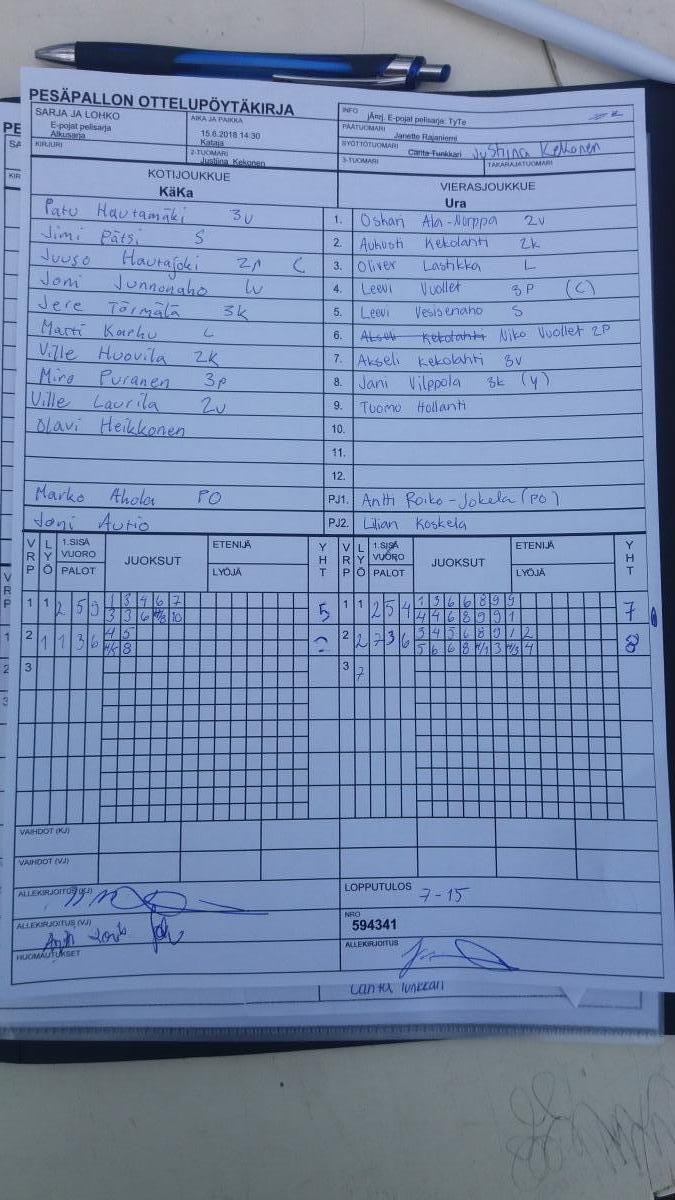 PESÄPALLON OTTELUPÖYTÄKIRJA
SARJA JA LOHKO
E-pojat pelisarja
Alkusarja
AIKA JA PAIKKA
15.6.2018 14:30
Kataja
INFO
jÄrj. E-pojat pelisarja: TyTe
PÄÄTUOMARI
Janette Rajaniemi
SYÖTTÖTUOMARI
Carita Tunkkari Justiina Kekonen
KIRJURI
2-TUOMARI
Justiina Kekonen
3-TUOMARI
TAKARAJATUOMARI
KOTIJOUKKUE
KäKa
VIERASJOUKKUE
Ura
Patu Hautamäki 3v 1. Oskari Ala-Norppa 2v
Jimi Pätsi S 2. Aukusti Kekolahti 2k
Juuso Hautajoki 2p C 3. Oliver Lastikka L
Joni Junnonaho 4. Leevi Vuollet 3P (C)
Jere Törmälä 3k 5. Leevi Vesisenaho S
Matti Karhu L 6. Akseli Kekolahti Niko Vuollet 2P
Ville Huovila 2k 7. Akseli Kekolahti 3v
Miro Puranen 3p 8. Jani Vilppola 3k (y)
Ville Laurila 2v 9. Tuomo Hollanti
Olavi Heikkonen 10.
11.
12.
Marko Ahola PO PJ1. Antti Roiko-Jokela (PO)
Joni Autio PJ2. Lilian Koskela
VRP LYÖ 1.SISÄ VUORO PALOT JUOKSUT ETENIJÄ LYÖJÄ YHT VRP LYÖ 1.SISÄ VUORO PALOT JUOKSUT ETENIJÄ LYÖJÄ YHT
1 1 2 5 9 1 3 4 6 7 5 1 1 2 5 4 1 3 6 6 8 9 9 7
3 3 6 10 4 4 6 8 9 9 1
2 1 1 3 6 4 5 2 2 7 3 6 3 4 5 6 8 9 1 2 8
8 5 6 6 8 4/1 3 4/3 4
3 3 7
VAIHDOT (KJ)
VAIHDOT (VJ)
ALLEKIRJOITUS (KJ)
LOPPUTULOS
7-15
ALLEKIRJOITUS (VJ)
NRO
594341
HUOMAUTUKSET
ALLEKIRJOITUS
Carita Tunkkari